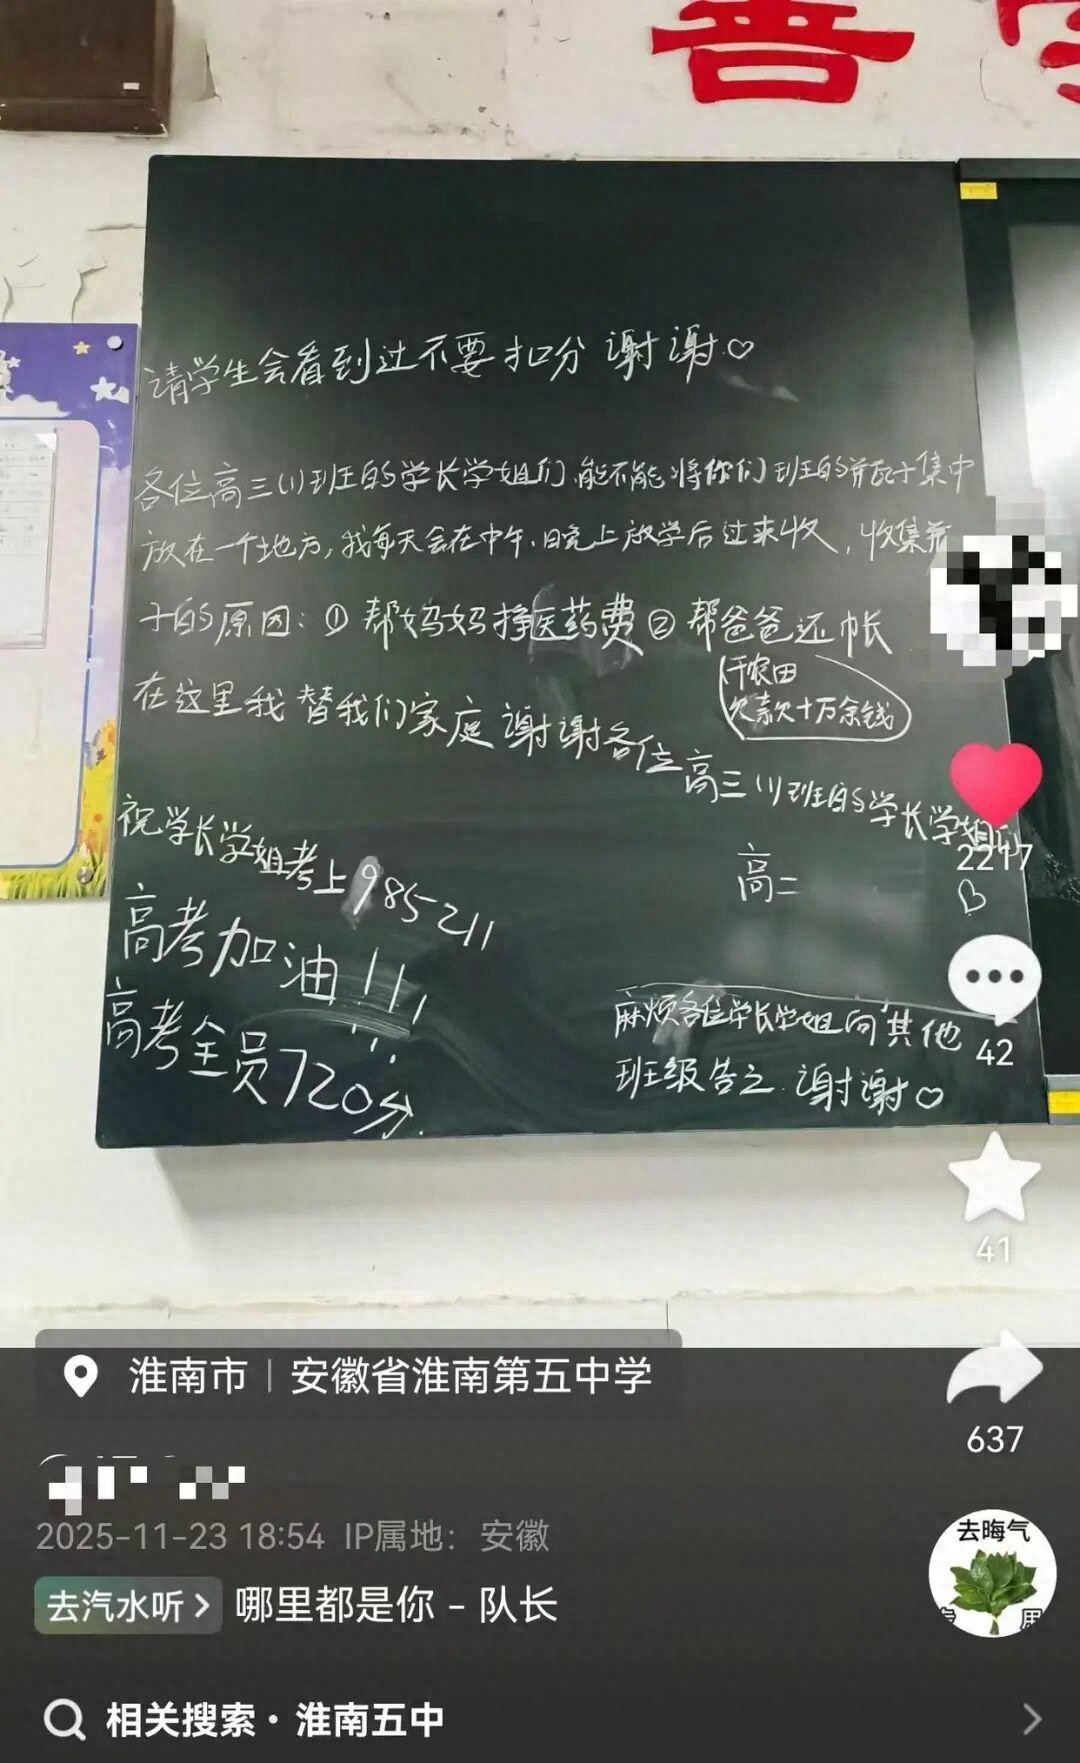 请学生会看到过不要扣分 谢谢♡
各位高三(1)班的学长学姐们,能不能将你们班的瓶子集中
放在一个地方,我每天会在中午,晚上放学后过来收,收集瓶
子的原因:① 帮妈妈挣医药费② 帮爸爸还帐
(干农田
欠款十万余钱)
在这里我替我们家庭谢谢各位高三(1)班的学长学姐们
高二
祝学长学姐考上985211
高考加油!!!
高考全员720分.
麻烦各位学长学姐向其他
班级告之.谢谢♡
2217
42
41
637
淮南市 | 安徽省淮南第五中学
2025-11-23 18:54 IP属地:安徽
去汽水听 > 哪里都是你 - 队长
去晦气
相关搜索· 淮南五中